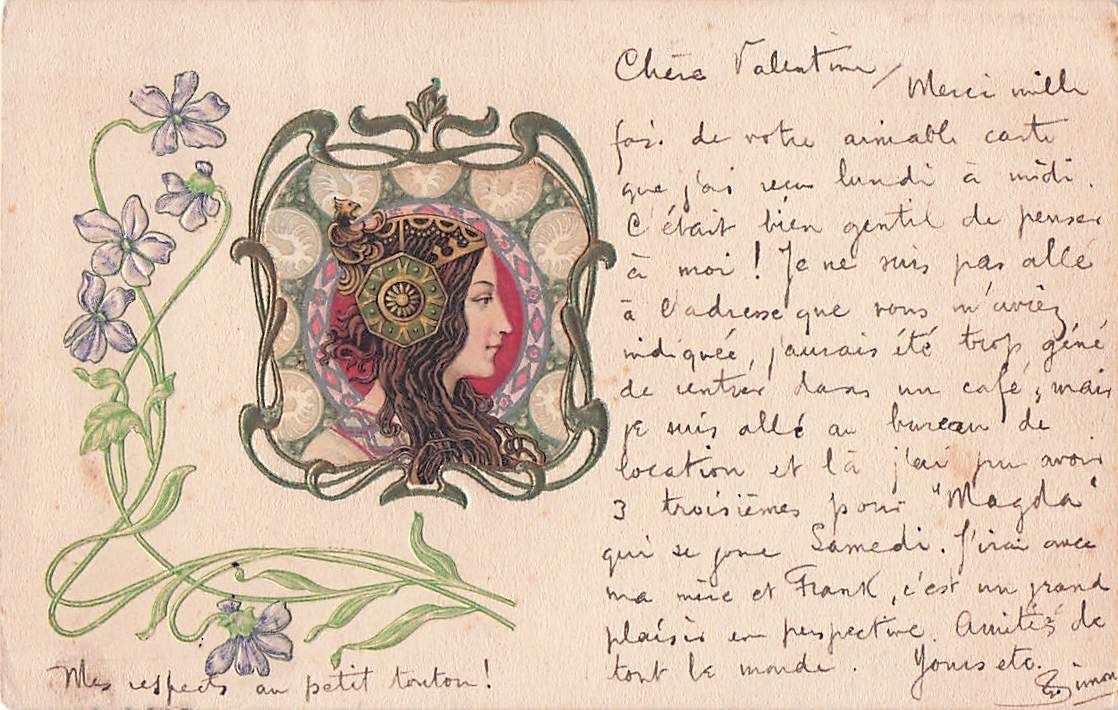 Chère Valentine,
Merci mille
fois de votre aimable carte
que j'ai reçu lundi à midi.
C'était bien gentil de penser
à moi! Je ne suis pas allé
à l'adresse que vous m'aviez
indiquée, j'aurais été trop géné
de rentrer dans un café, mais
je suis allé au bureau de
location et là j'ai pu avoir
3 troisièmes pour "Magda"
qui se joue Samedi. J'irai avec
ma mère et Frank, c'est un grand
plaisir en perspective. Amitiés de
tout le monde. Yours etc.
Simon
Mes respects au petit toutou!